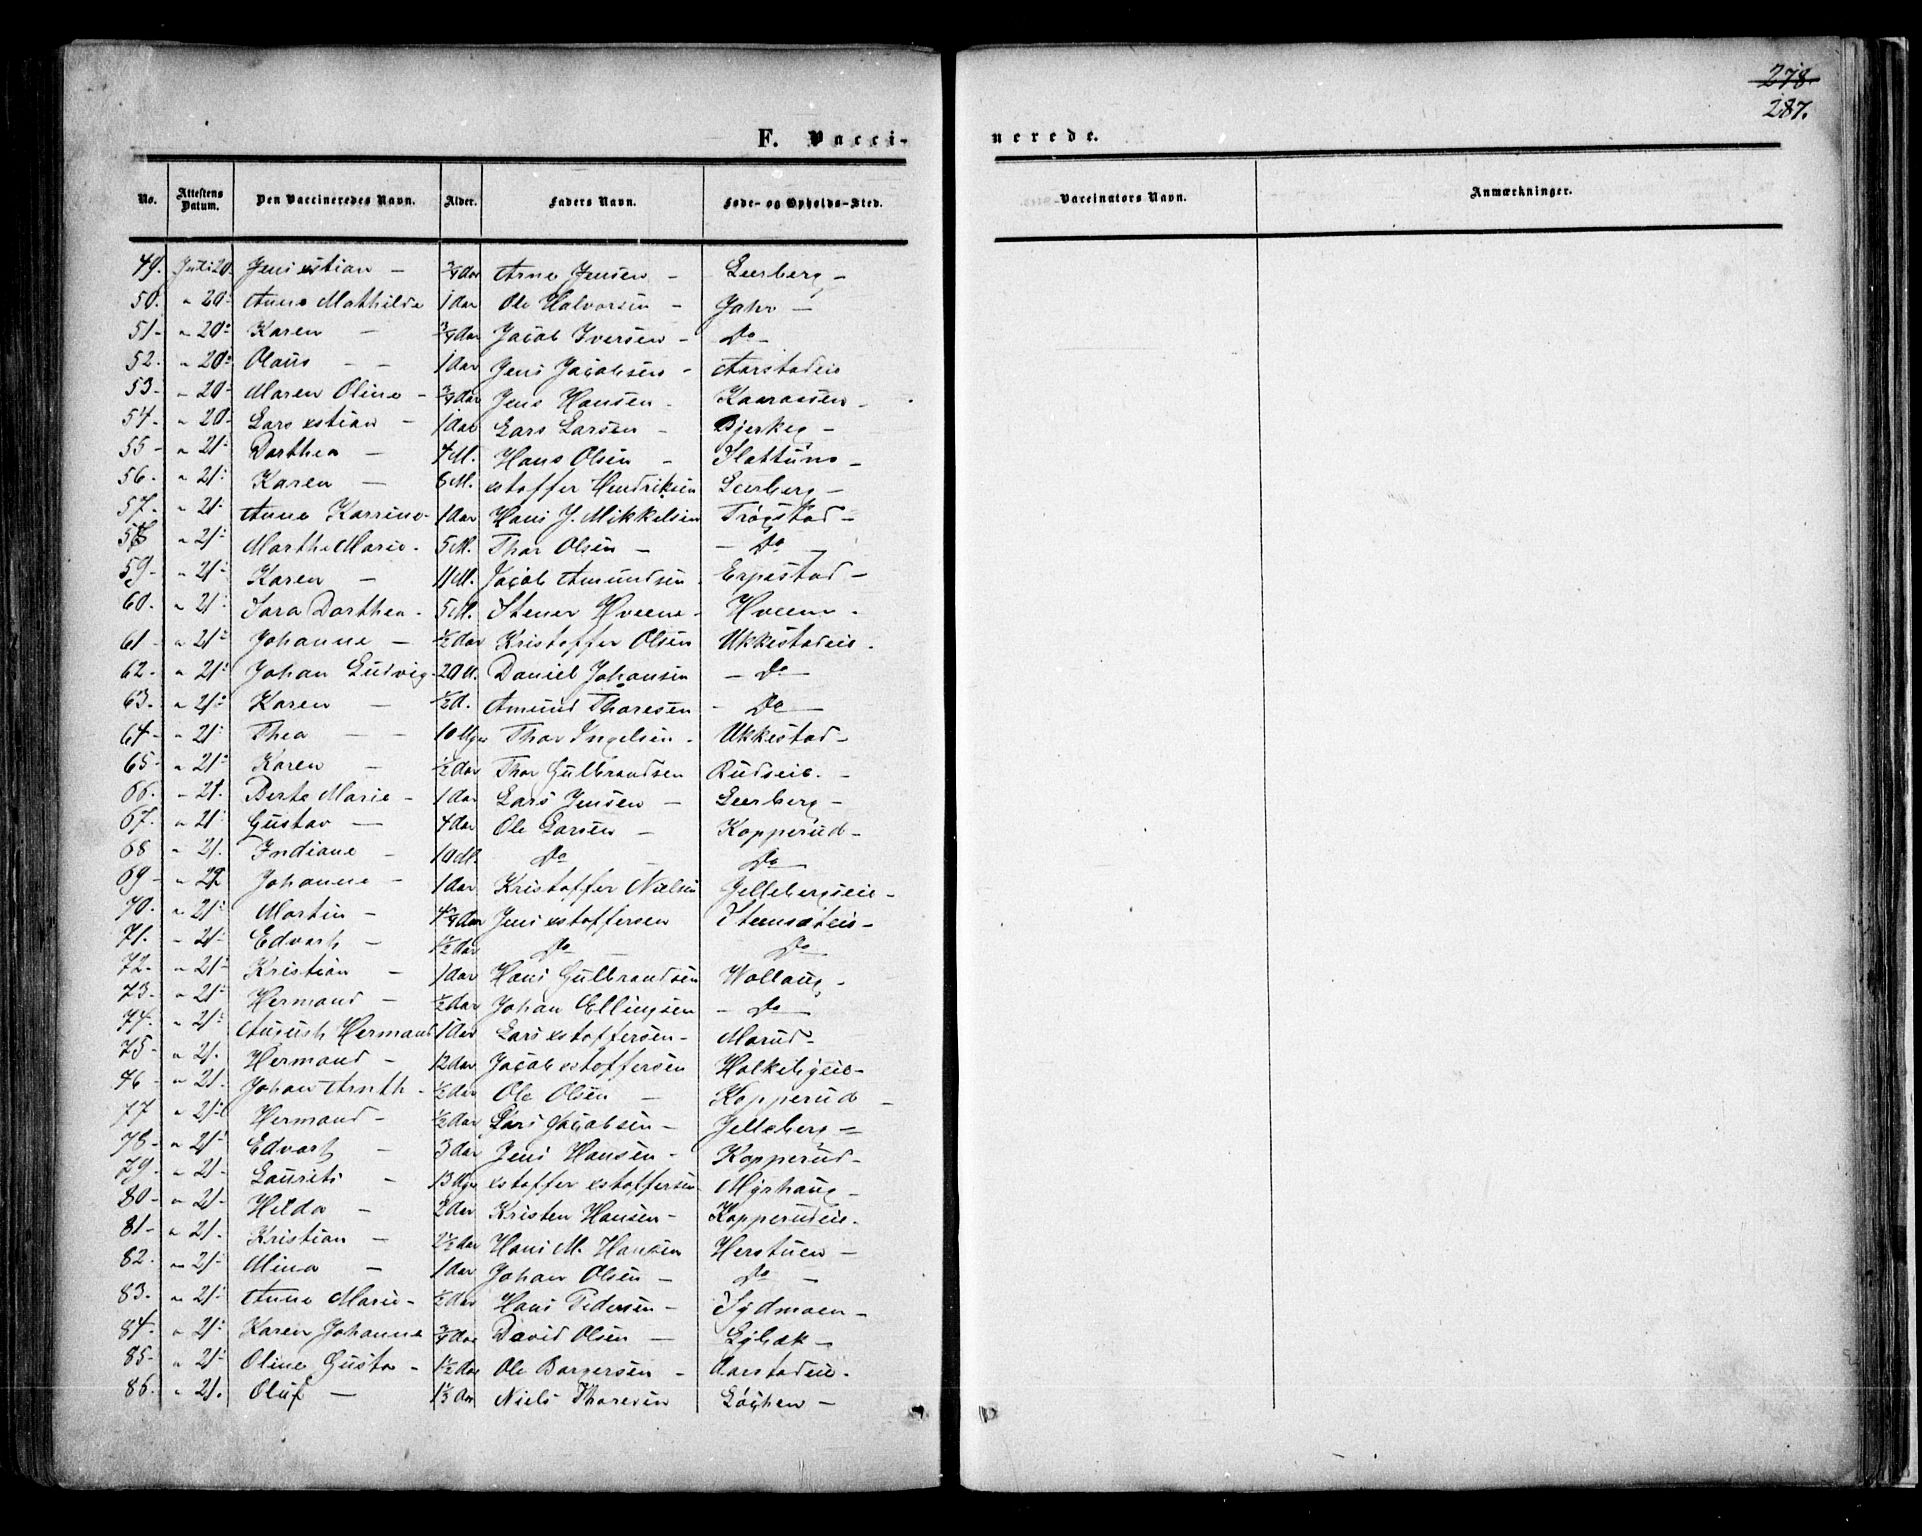 278.
287.
F. Vaccinerede.
No. Attestens Datum. Den Vaccineredes Navn. Alder. Faders Navn. Føde- og Opholds-Sted. Vaccinators Navn. Anmærkninger.
49. Juli 20. Jens xstian - 3/4 Aar Arne Jensen - Leerberg -
50. " 20. Anne Mathilde 1 Aar Ole Halvorsen - Gahr -
51 - " 20. Karen - 3/4 Aar Jacob Iversen - Do -
52. " 20. Olaus - - 1 Aar Jens Jacobsen - Aarstadeie
53 - " 20 - Maren Oline - 3/4 Aar Jens Hansen - Kaarassen -
54. " 20 - Lars xstian - 1 Aar Lars Larsen - Bjerkeg -
55 - " 21. Dorthea - 4 M. Hans Olsen - Slattum -
56. " 21. Karen - 8 M. xstoffer Hendriksen Leerberg -
57. " 21. Anne Karrine - 1 Aar Hans J. Mikkelsen Trøgstad -
58 - " 21. Marthe Marie - 5 M. Thor Olsen - - Do -
59 - " 21. Karen - 11 M. Jacob Amundsen - Erpestad -
60. " 21. Sara Dorthea - 5 M. Stener Hveem - Hveem -
61 - " 21. Johanne - 1/2 Aar Kristoffer Olsen Ukkestadeie.
62. " 21. Johan Ludvig - 20 M. Daniel Johansen - Do -
63. " 21. Karen - 1/2 A. Amund Thoresen - Do -
64 - " 21. Thea - - 10 Uger Thor Ingelsen - Ukkestad -
65 - " 21. Karen - 1/2 Aar Thor Gulbrandsen Rudseie. -
66. - 21. Berte Marie - 1 Aar Lars Jensen - Leerberg -
67. " 21. Gustav - 4 Aar Ole Larsen - Kopperud -
68 - 21. Indiane - 10 M. Do - Do -
69 - " 22 Johanne - 1 Aar Kristoffer Nielsen Gellebergseie -
70. " 21. Martin - Jens xstoffersen Stemsateie -
71. - 21. Edvart - 1 1/2 Aar Do - Do
72. - 21. Kristian - 1 Aar Hans Gulbrandsen Wollaug -
73. - 21. Hermand - 1/2 Aar Johan Ellingsen - Do -
74. " 21. August Hermand 1 Aar Lars xstoffersen - Marud -
75 - " 21. Hermand - 12 Aar Jacob xstoffersen
76 - " 21. Johan Arnth - 1/2 Aar Ole Olsen - Kopperud -
77 " 21. Hermand - 1/2 Aar Lars Jacobsen - Gelleberg -
78 - " 21. Edvart - 3 Aar Jens Hansen - Kopperud -
79. " 21. Laurits - 13 Uger xstoffer xstoffersen Myrhaug -
80 - " 21 - Hilda - 2 Aar Kristen Hansen - Kopperudeie.
81 - " 21. Kristian - 2 1/2 Aar Hans M. Hansen Herstuen -
82. " 21. Mina - 1 Aar Johan Olsen - Do -
83. " 21. Anne Marie - 1/2 Aar Hans Pedersen - Sydmoen -
84. " 21. Karen Johanne 3/4 Aar David Olsen - Lybæk -
85 - " 21 - Oline Gusta - 1 1/2 Aar Ole Borgersen - Aarstadeie.
86. " 21. Oluf - 1 1/3 Aar Niels Thoresen Løchen -